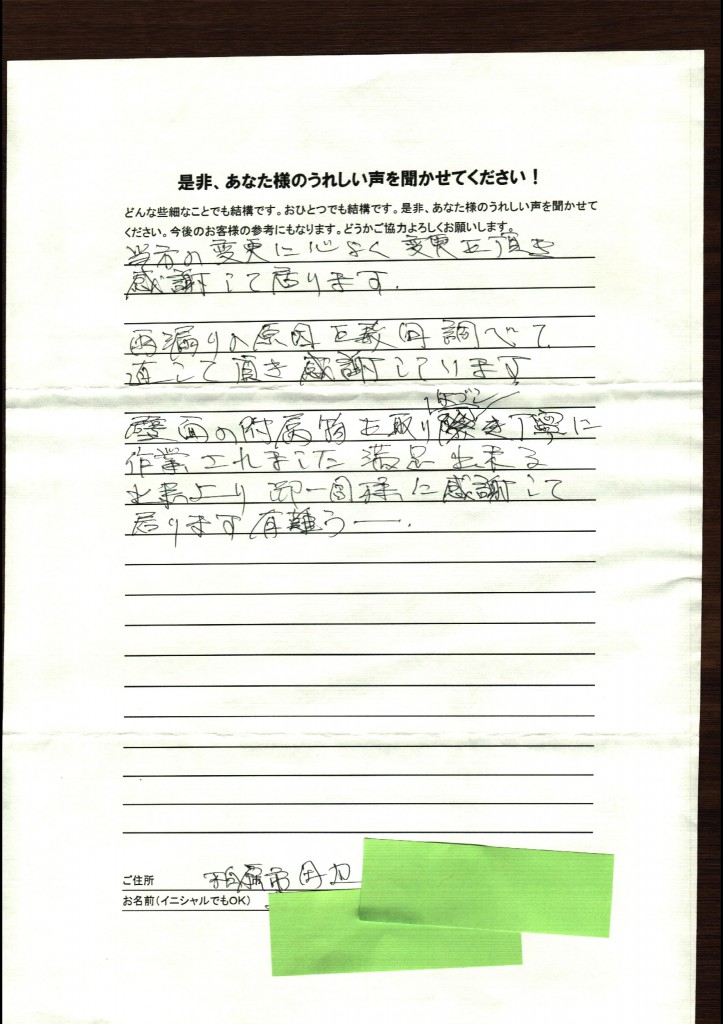 是非、あなた様のうれしい声を聞かせてください！
どんな些細なことでも結構です。おひとつでも結構です。是非、あなた様のうれしい声を聞かせて
ください。今後のお客様の参考にもなります。どうかご協力よろしくお願いします。
当方の変更に心よく変更を頂き
感謝して居ります.
雨漏りの原因を調べて
直して頂き感謝しております
壁面の附属物を取り丁寧に
作業されました満足出来る
出来上り感謝して
居ります有難うー.
ご住所 柏原市
お名前（イニシャルでもOK）